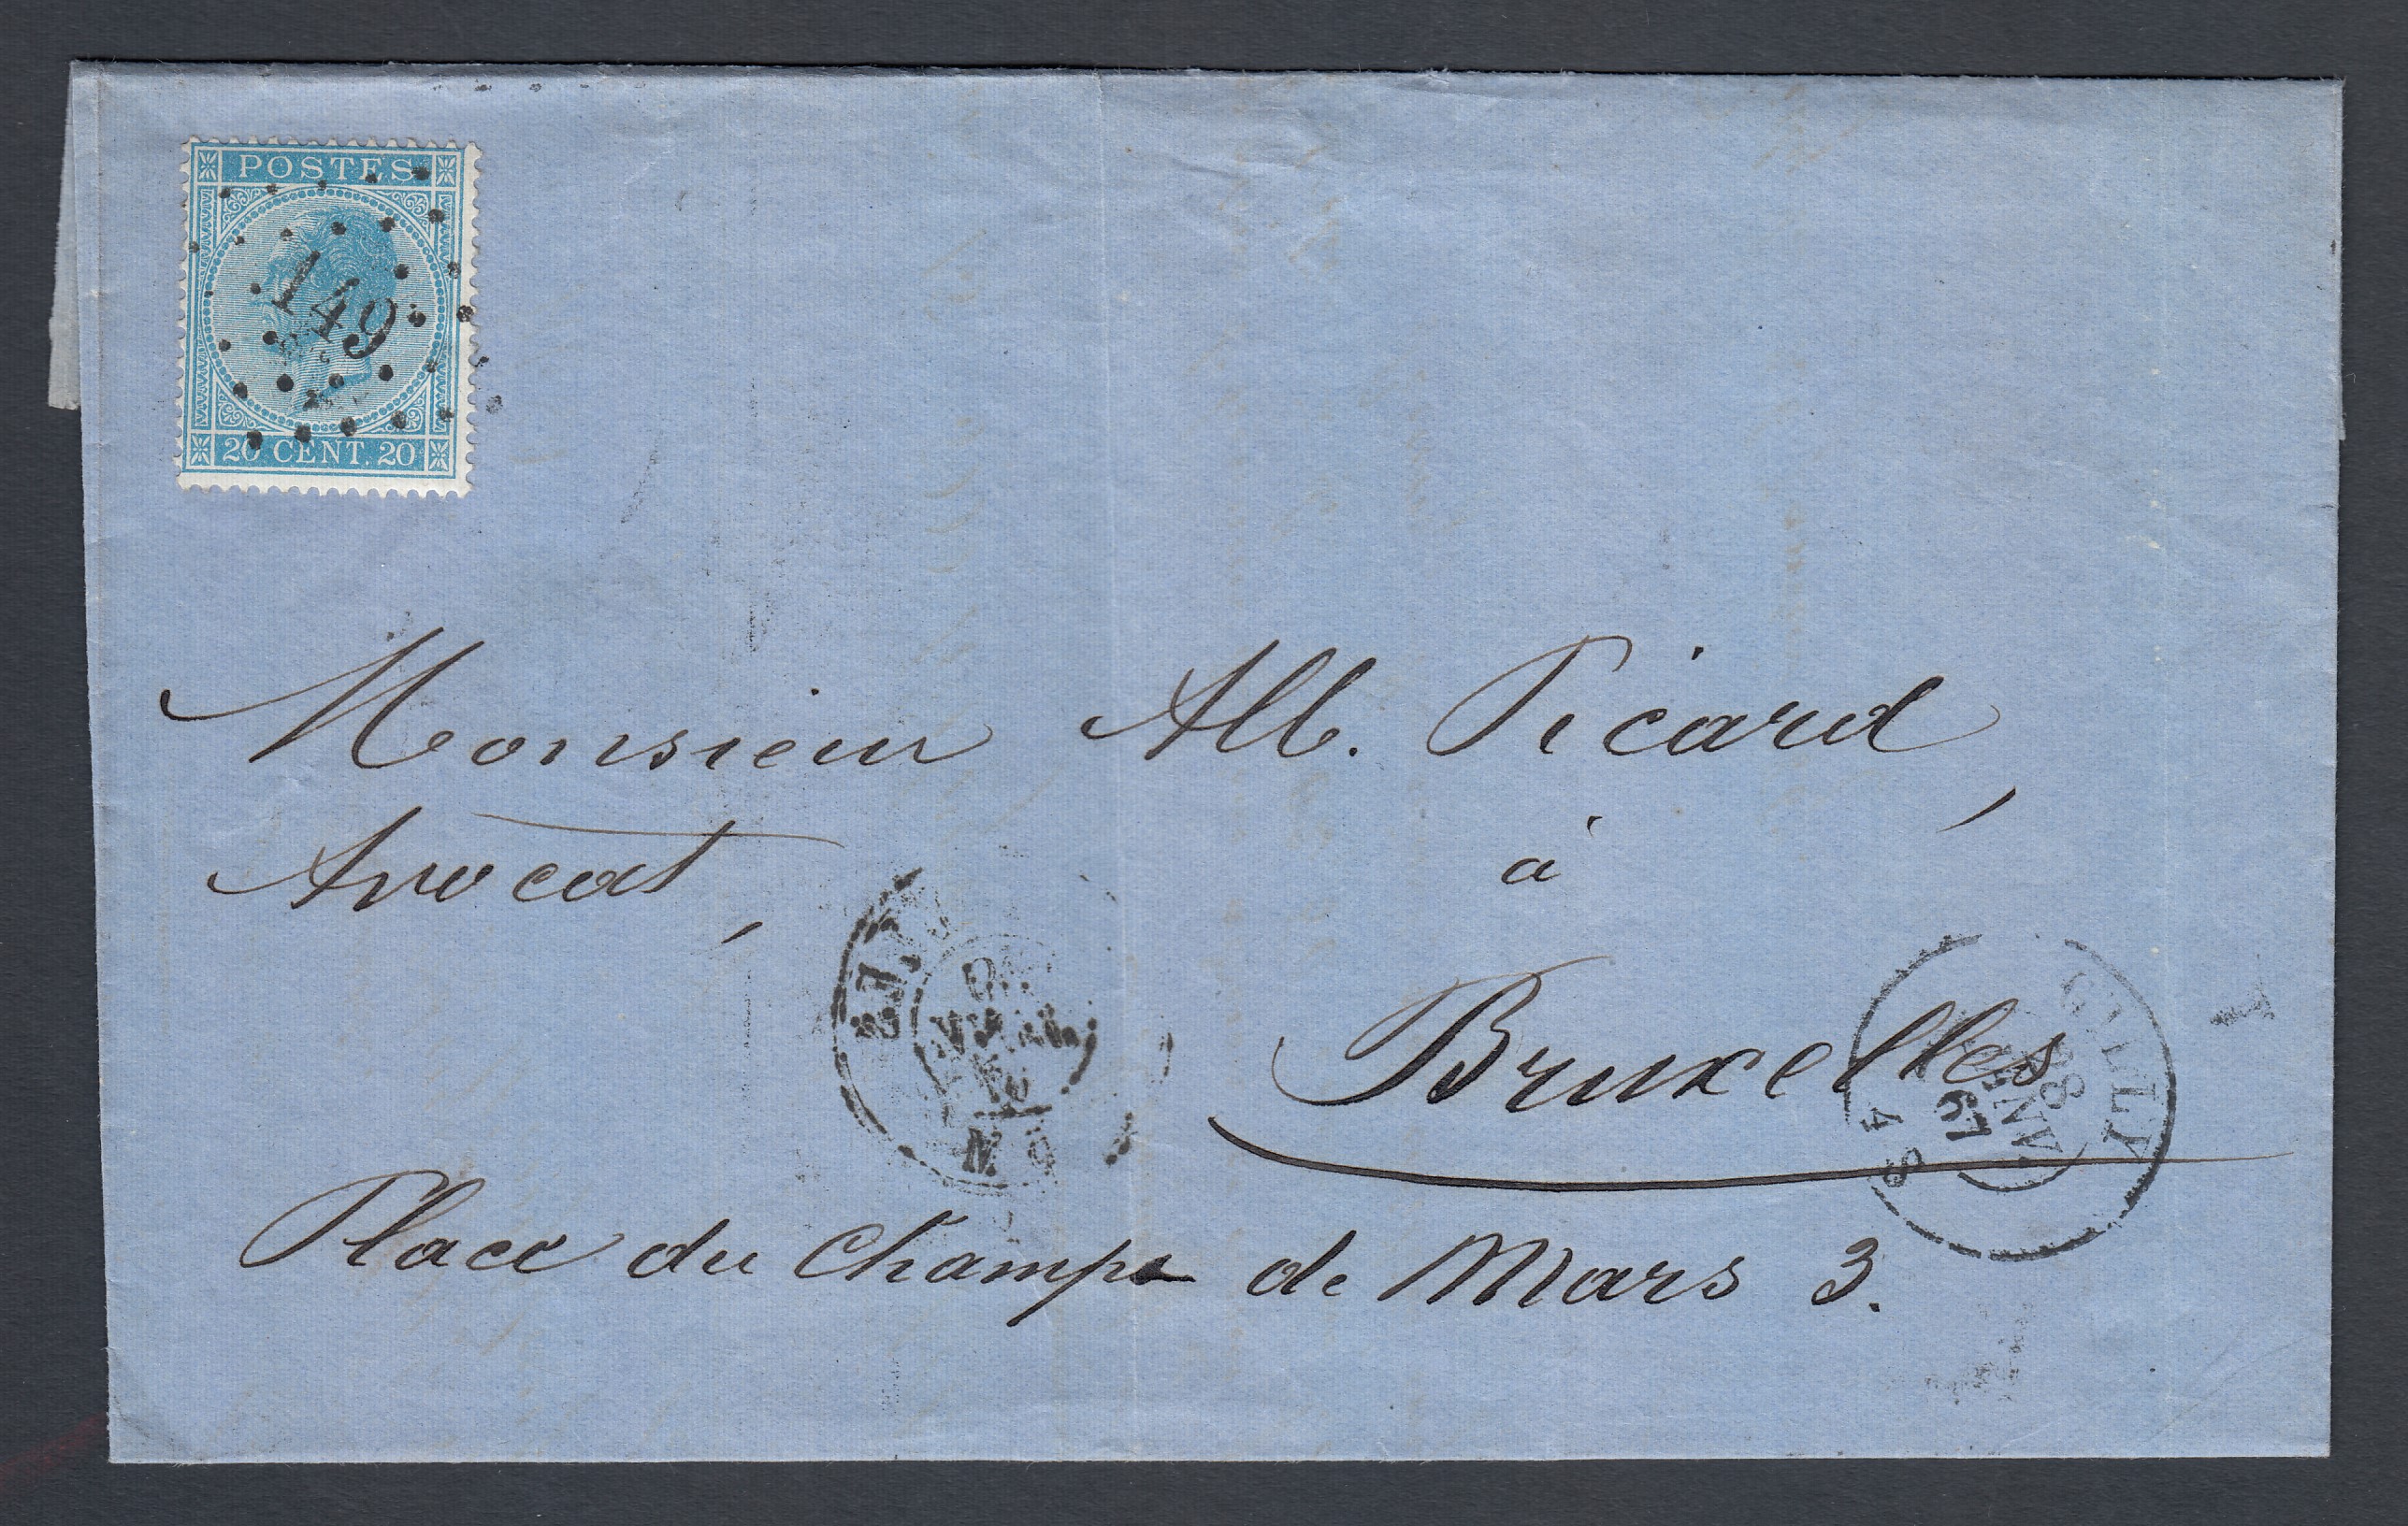 POSTES
149
20 CENT. 20
Monsieur Alb. Picard,
Avocat,
à
Bruxelles
GILLY
8
4 S
Place du Champs de Mars 3.